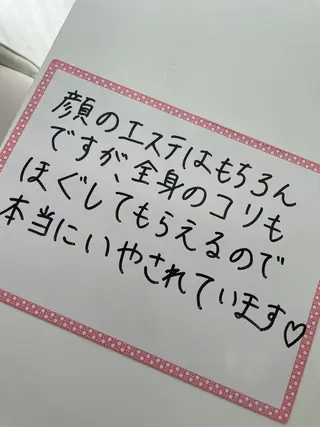 顔のエステはもちろん
ですが、全身のコリも
ほぐしてもらえるので
本当にいやされています♡